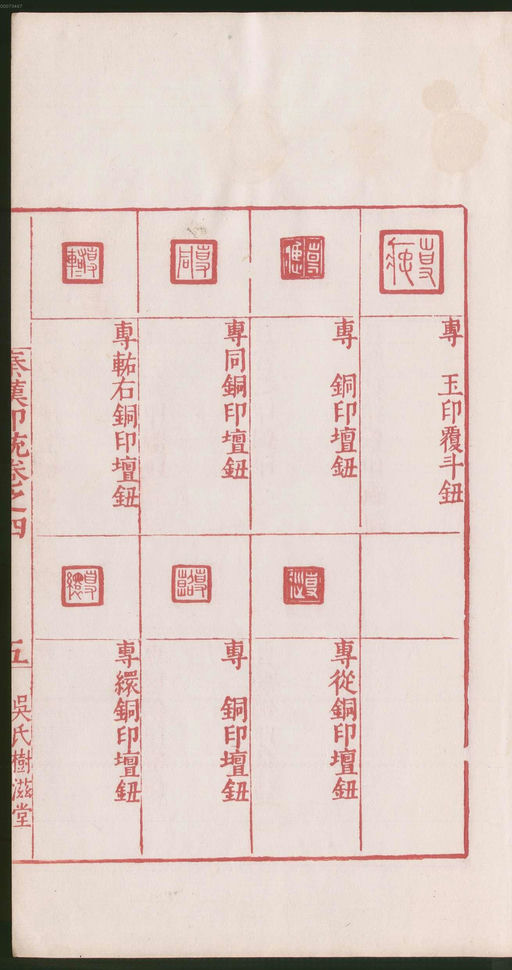 專　玉印覆斗鈕
專　銅印壇鈕
專同銅印壇鈕
專軲右銅印壇鈕
專從銅印壇鈕
專　銅印壇鈕
專繯銅印壇鈕
秦漢印統卷之四
五
吳氏樹滋堂
00073447